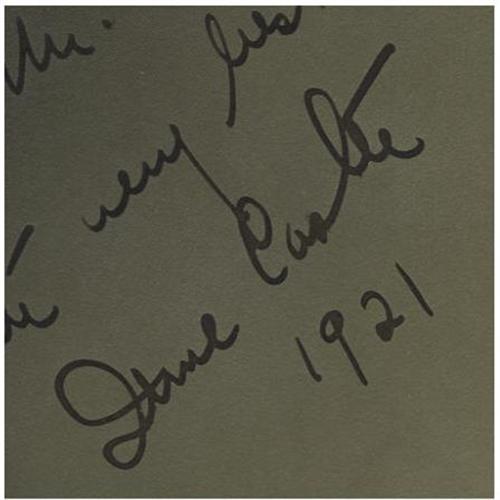 Mr.
very
Irene Castle
1921